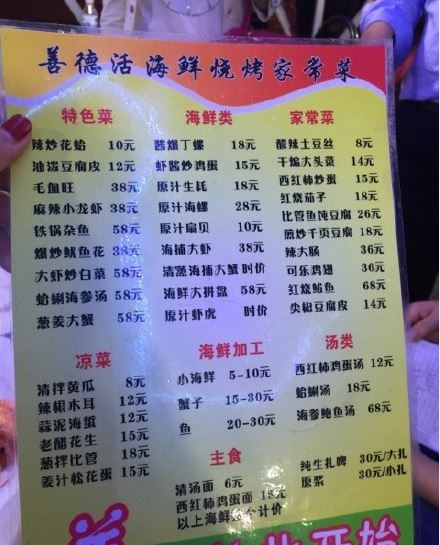 善德活海鲜烧烤家常菜
特色菜
辣炒花蛤 10元
油泼豆腐皮 12元
毛血旺 38元
麻辣小龙虾 38元
铁锅杂鱼 58元
爆炒鱿鱼花 38元
大虾炒白菜 58元
蛤蜊海参汤 58元
葱姜大蟹 58元
海鲜类
酱爆丁螺 18元
虾酱炒鸡蛋 15元
原汁生蚝 18元
原汁海螺 28元
原汁扇贝 10元
海捕大虾 38元
清蒸海捕大蟹 时价
海鲜大拼盘 58元
原汁虾虎 时价
家常菜
酸辣土豆丝 8元
干煸大头菜 14元
西红柿炒蛋 15元
红烧茄子 18元
比管鱼炖豆腐 26元
煎炒千页豆腐 18元
辣大肠 36元
可乐鸡翅 36元
红烧鲅鱼 68元
尖椒豆腐皮 14元
凉菜
清拌黄瓜 8元
辣根木耳 12元
蒜泥海蜇 12元
老醋花生 15元
葱拌比管 18元
姜汁松花蛋 15元
海鲜加工
小海鲜 5-10元
蟹子 15-30元
鱼 20-30元
主食
清汤面 6元
西红柿鸡蛋面
以上海鲜 计价
汤类
西红柿鸡蛋汤 12元
蛤蜊汤 18元
海参鲍鱼汤 68元
纯生扎啤 30元/大扎
原浆 30元/小扎
开始